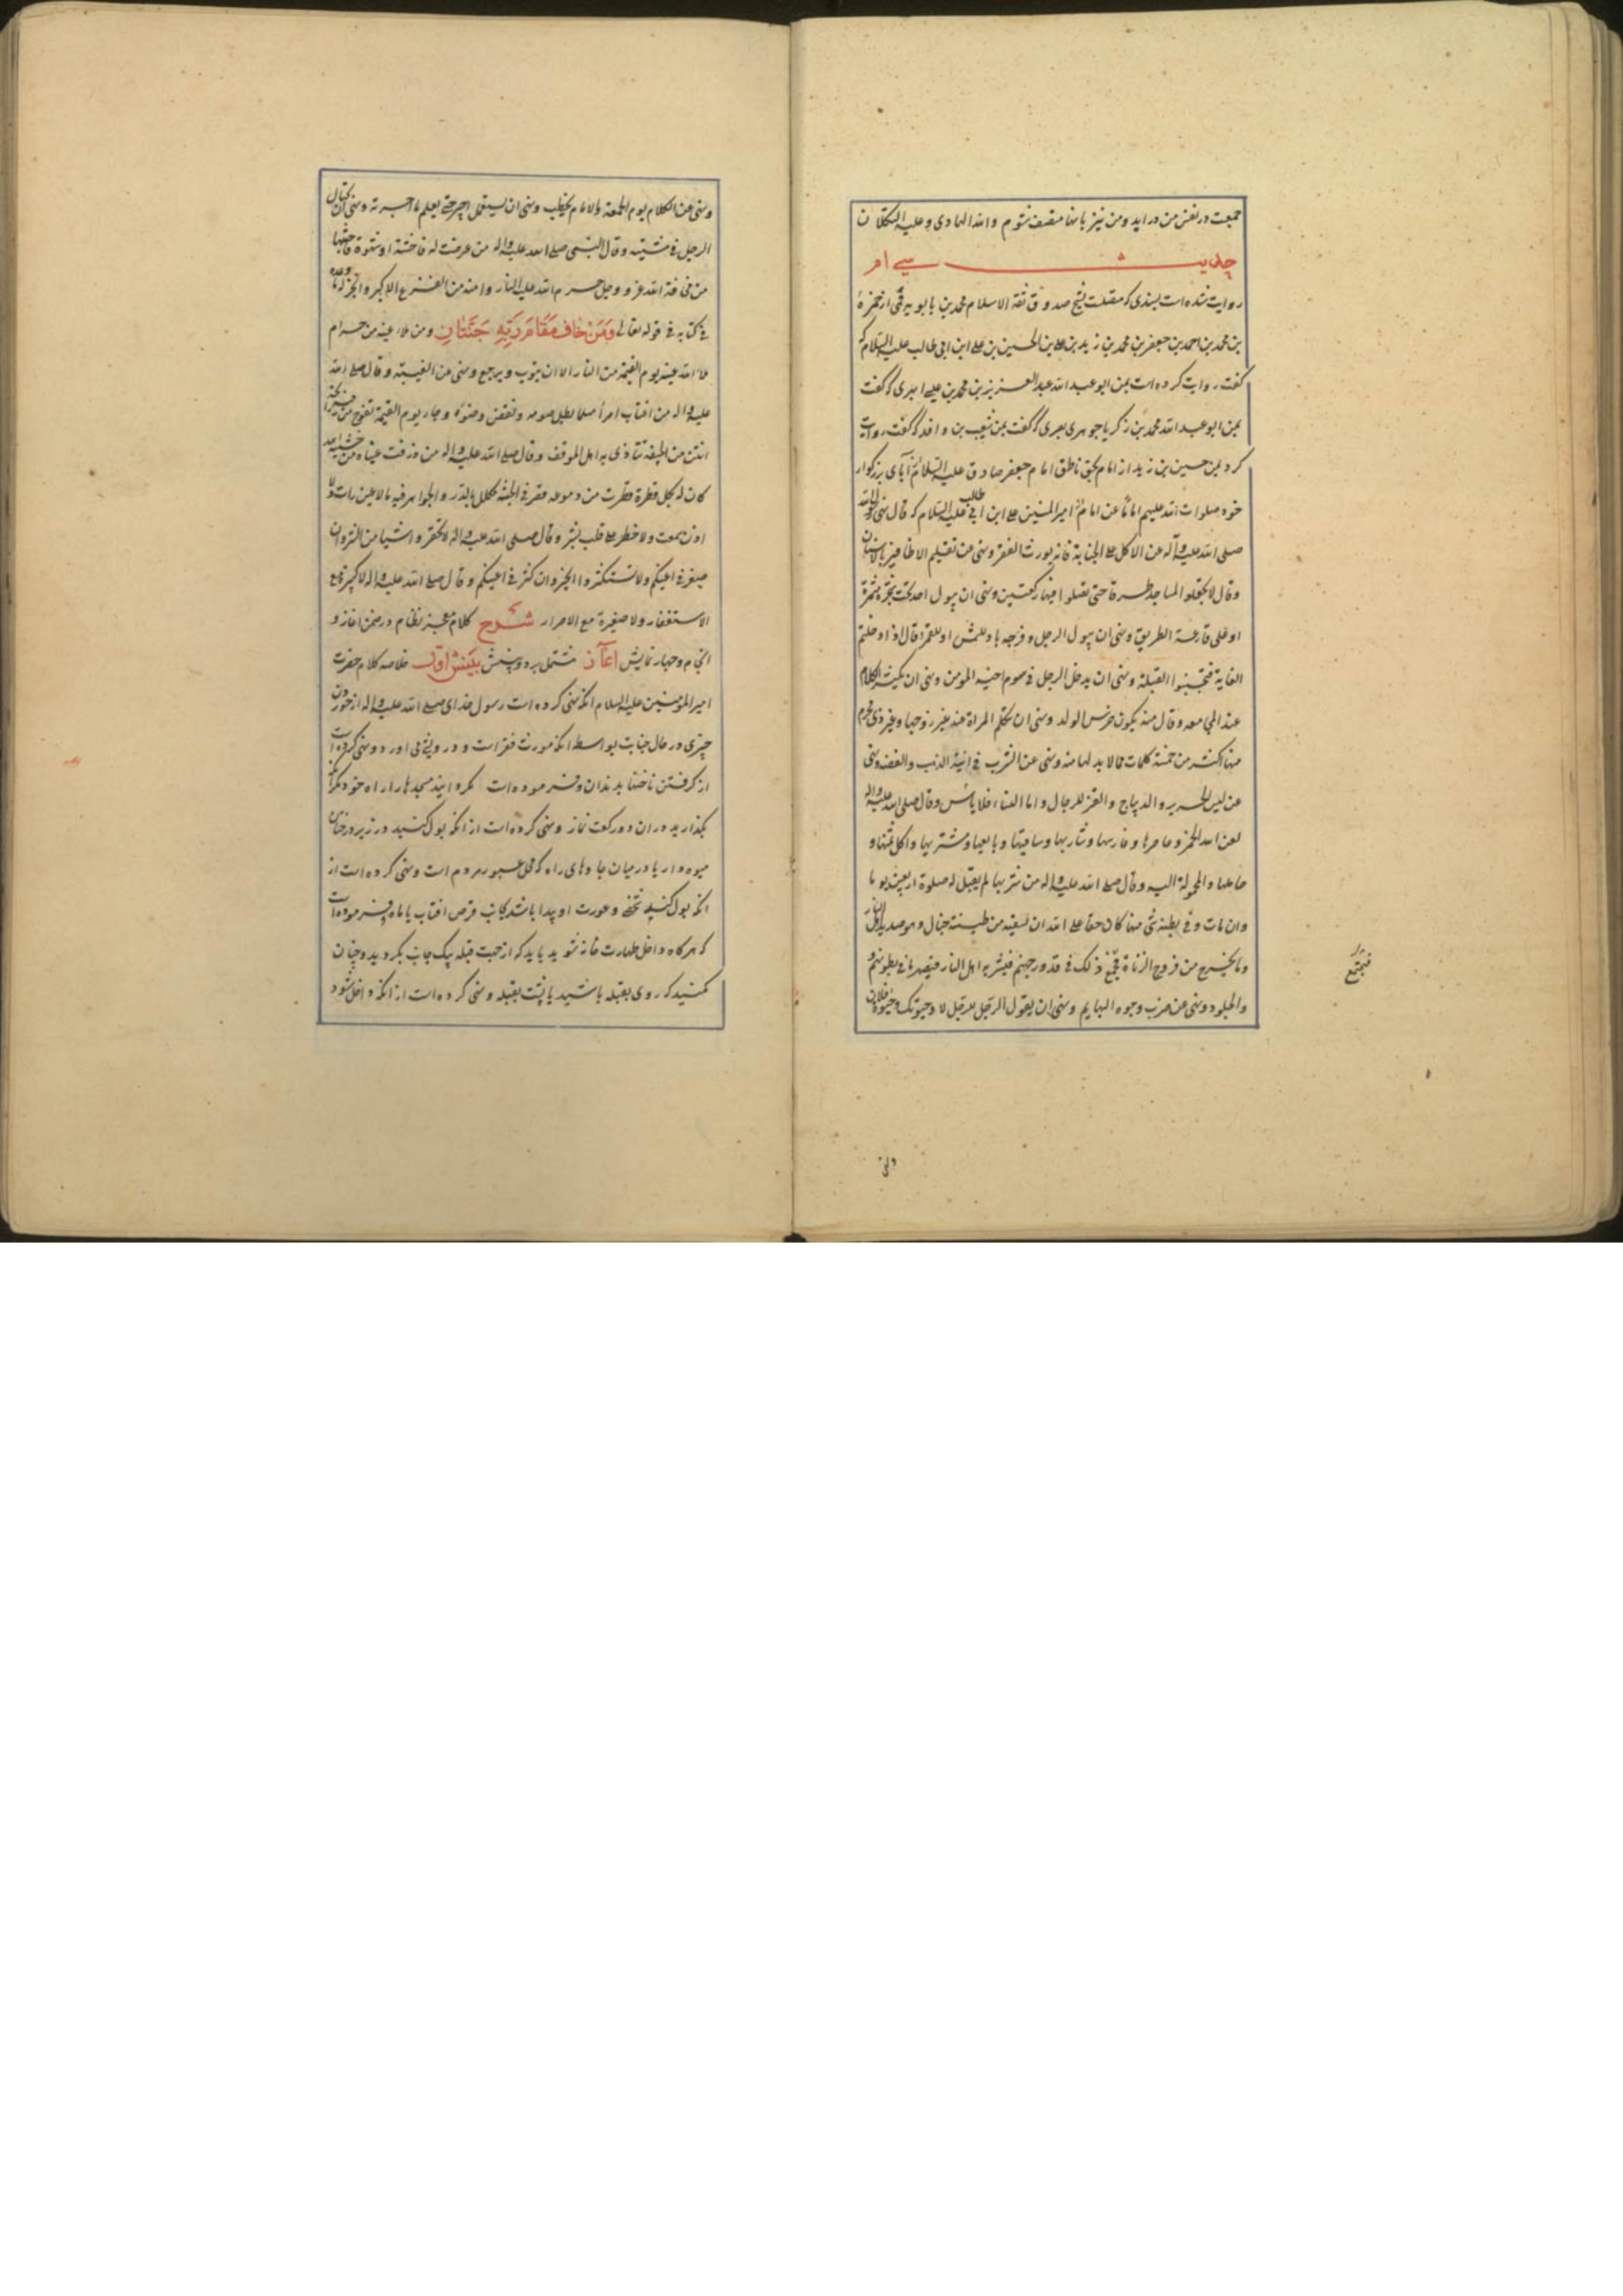 جمعیت در نفس من در اید و من نیز بانها متصف شوم و الله الهادی و علیه التکلان
حدیث سی ام
روایت شده است بسندی که متصلست بشیخ صدوق ثقة الاسلام محمد بن بابویه قمی از حمزهٔ
بن محمد بن احمد بن جعفر بن محمد بن زید بن علی بن الحسین بن علی ابن ابی طالب علیه السلام که
گفت روایت کرده است بمن ابو عبد الله عبد العزیز بن محمد بن عیسی ابهری که گفت
بمن ابو عبد الله محمد بن زکریا جوهری بصری که گفت بمن شعیب بن واقد که گفت روایت
کرد بمن حسین بن زید از امام بحق ناطق امام جعفر صادق علیه السلام از آبای بزرکوار
خود صلوات الله علیهم اماماً عن امام امیر المنین علی ابن ابی طالب علیه السلام که قال نهی رسول الله
صلی الله علیه وآله عن الاکل علی الجنابة فانه یورث الفقر و نهی عن تقلیم الاظافیر بالاسنان
وقال لا تجعلوا المساجد طرقا حتی تصلوا فیها رکعتین ونهی ان یبول احد تحت شجرة مثمرة
او علی قارعة الطریق ونهی ان یبول الرجل وفرجه باد للشمس او للقمر وقال اذا دخلتم
الغایة فتجنبوا القبلة ونهی ان یدخل الرجل فی سوم اخیه المومن ونهی ان یکثر الکلام
عند المجامعه وقال منه یکون خرس الولد ونهی ان تتکلم المراة عند غیر زوجها وغیر ذی محرم
منها اکثر من خمسة کلمات مما لا بد لها منه ونهی عن الشرب فی انیة الذهب والفضه ونهی
عن لبس الحریر والدیباج والقز للرجال واما النساء فلا باس وقال صلی الله علیه واله
لعن الله الخمر وعاصرها وغارسها وشاربها وساقیها وبایعها ومشتریها واکل ثمنها و
حاملها والمحمولة الیه وقال صلی الله علیه واله من شربها لم یقبل له صلوة اربعین یوما
وان مات وفی بطنه شی منها کان حقا علی الله ان یسقیه من طینة خبال وهو صدید اهل النار
وما یخرج من فروج الزناة فیجتمع ذلک فی قدور جهنم فیشربه اهل النار فیصهر ما فی بطونهم
والجلود ونهی عن ضرب وجوه البهایم ونهی ان یقول الرجل للرجل لا وحیوتک وحیوة فلان
فیجتمع
ونهی عن الکلام یوم الجمعة والامام یخطب ونهی ان یستعمل اجیر حتی یعلم ما اجرته ونهی ان یختال
الرجل فی مشیته وقال النبی صلی الله علیه واله من عرضت له فاحشة او شهوة فاجتنبها
من مخافة الله عز وجل حرم الله علیه النار وامنه من الفزع الاکبر وانجز له ما وعده
فی کتابه فی قوله تعالی وَمَنْ خَافَ مَقَامَ رَبِّهِ جَنَّتَانِ ومن ملاء عینه من حرام
ملا الله عینه یوم القیمة من النار الا ان یتوب ویرجع ونهی عن الغیبته وقال صلی الله
علیه واله من اغتاب امرأ مسلما بطل صومه ونقض وضوءه وجاء یوم القیمة تفوح من فیه رایحة
انتن من الجیفة تتاذی به اهل الموقف وقال صلی الله علیه واله من ذرفت عیناه من خشیة الله
کان له بکل قطرة قطرت من دموعه قصر فی الجنة مکلل بالدر والجواهر فیه ما لا عین رات ولا
اذن سمعت ولا خطر علی قلب بشر وقال صلی الله علیه واله لا تحقروا شیئا من الشر وان
صغر فی اعینکم ولا تستکثروا الخیر وان کثر فی اعینکم وقال صلی الله علیه واله لا کبیرة مع
الاستغفار ولا صغیرة مع الاصرار شرح کلام معجز نظام در ضمن اغاز و
انجام وچهار نمایش اغاز مشتمل بر دو بینش بینش اول خلاصه کلام حضرت
امیر المؤمنین علیه السلام انکه نهی کرده است رسول خدای صلی الله علیه واله از خوردن
چیزی در حال جنابت بواسطه انکه مورث فقر است و درویشی می اورد و نهی کرده است
از گرفتن ناخنها بدندان و فرموده است مگردانید مسجدها را راه خود مگر انکه
بگذارید در ان دو رکعت نماز و نهی کرده است از انکه بول کنید در زیر درختان
میوه دار یا در میان جادهای راه که محل عبور مردم است و نهی کرده است از
انکه بول کنید شخصی و عورت او پیدا باشد بجانب قرص افتاب یا ماه و فرموده است
که هرکاه داخل طهارت خانه شوید باید که از جهت قبله بیک جانب بگردید و چنان
مکنید که روی بقبله باشید یا پشت بقبله و نهی کرده است از انکه داخل شود